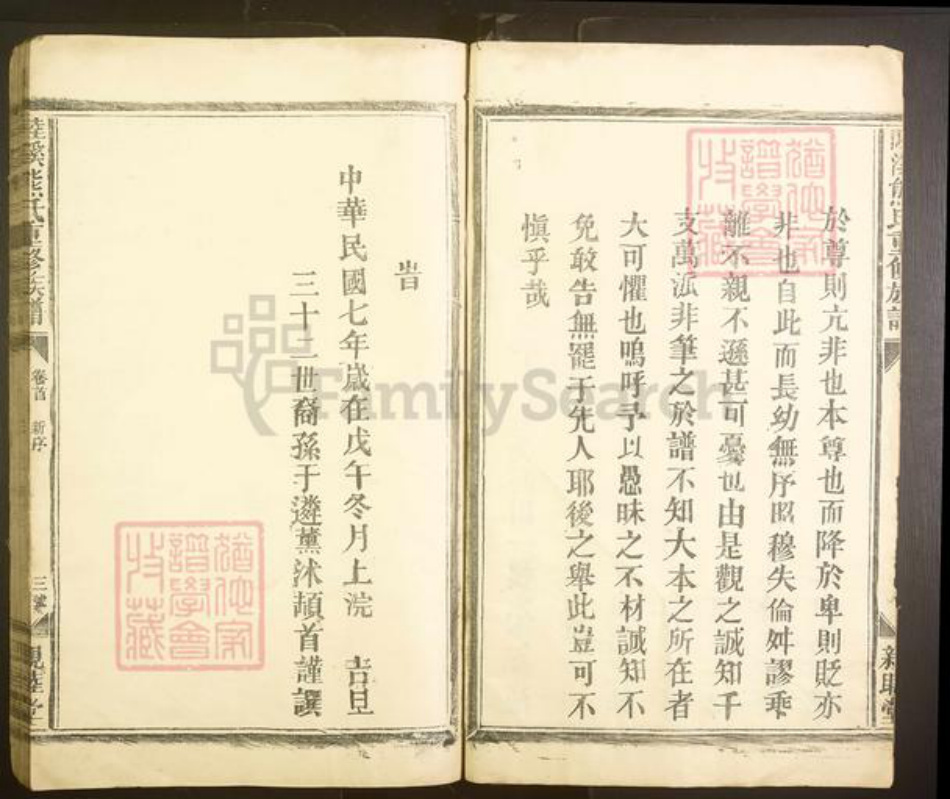 於尊則亢非也本尊也而降於卑則貶亦
非也自此而長幼無序昭穆失倫舛謬乖
離不親不遜甚可憂也由是觀之誠知千
支萬派非筆之於譜不知大本之所在者
大可懼也嗚呼予以愚昧之不材誠知不
免敢告無罷于先人耶後之舉此豈可不
慎乎哉
旹
中華民國七年歲在戊午冬月上浣 吉旦
三十二世裔孫于遴薰沐頓首謹譔
睦溪熊氏重修族譜 卷首 新序 三 親睦堂
譜學會 收藏
FamilySearch